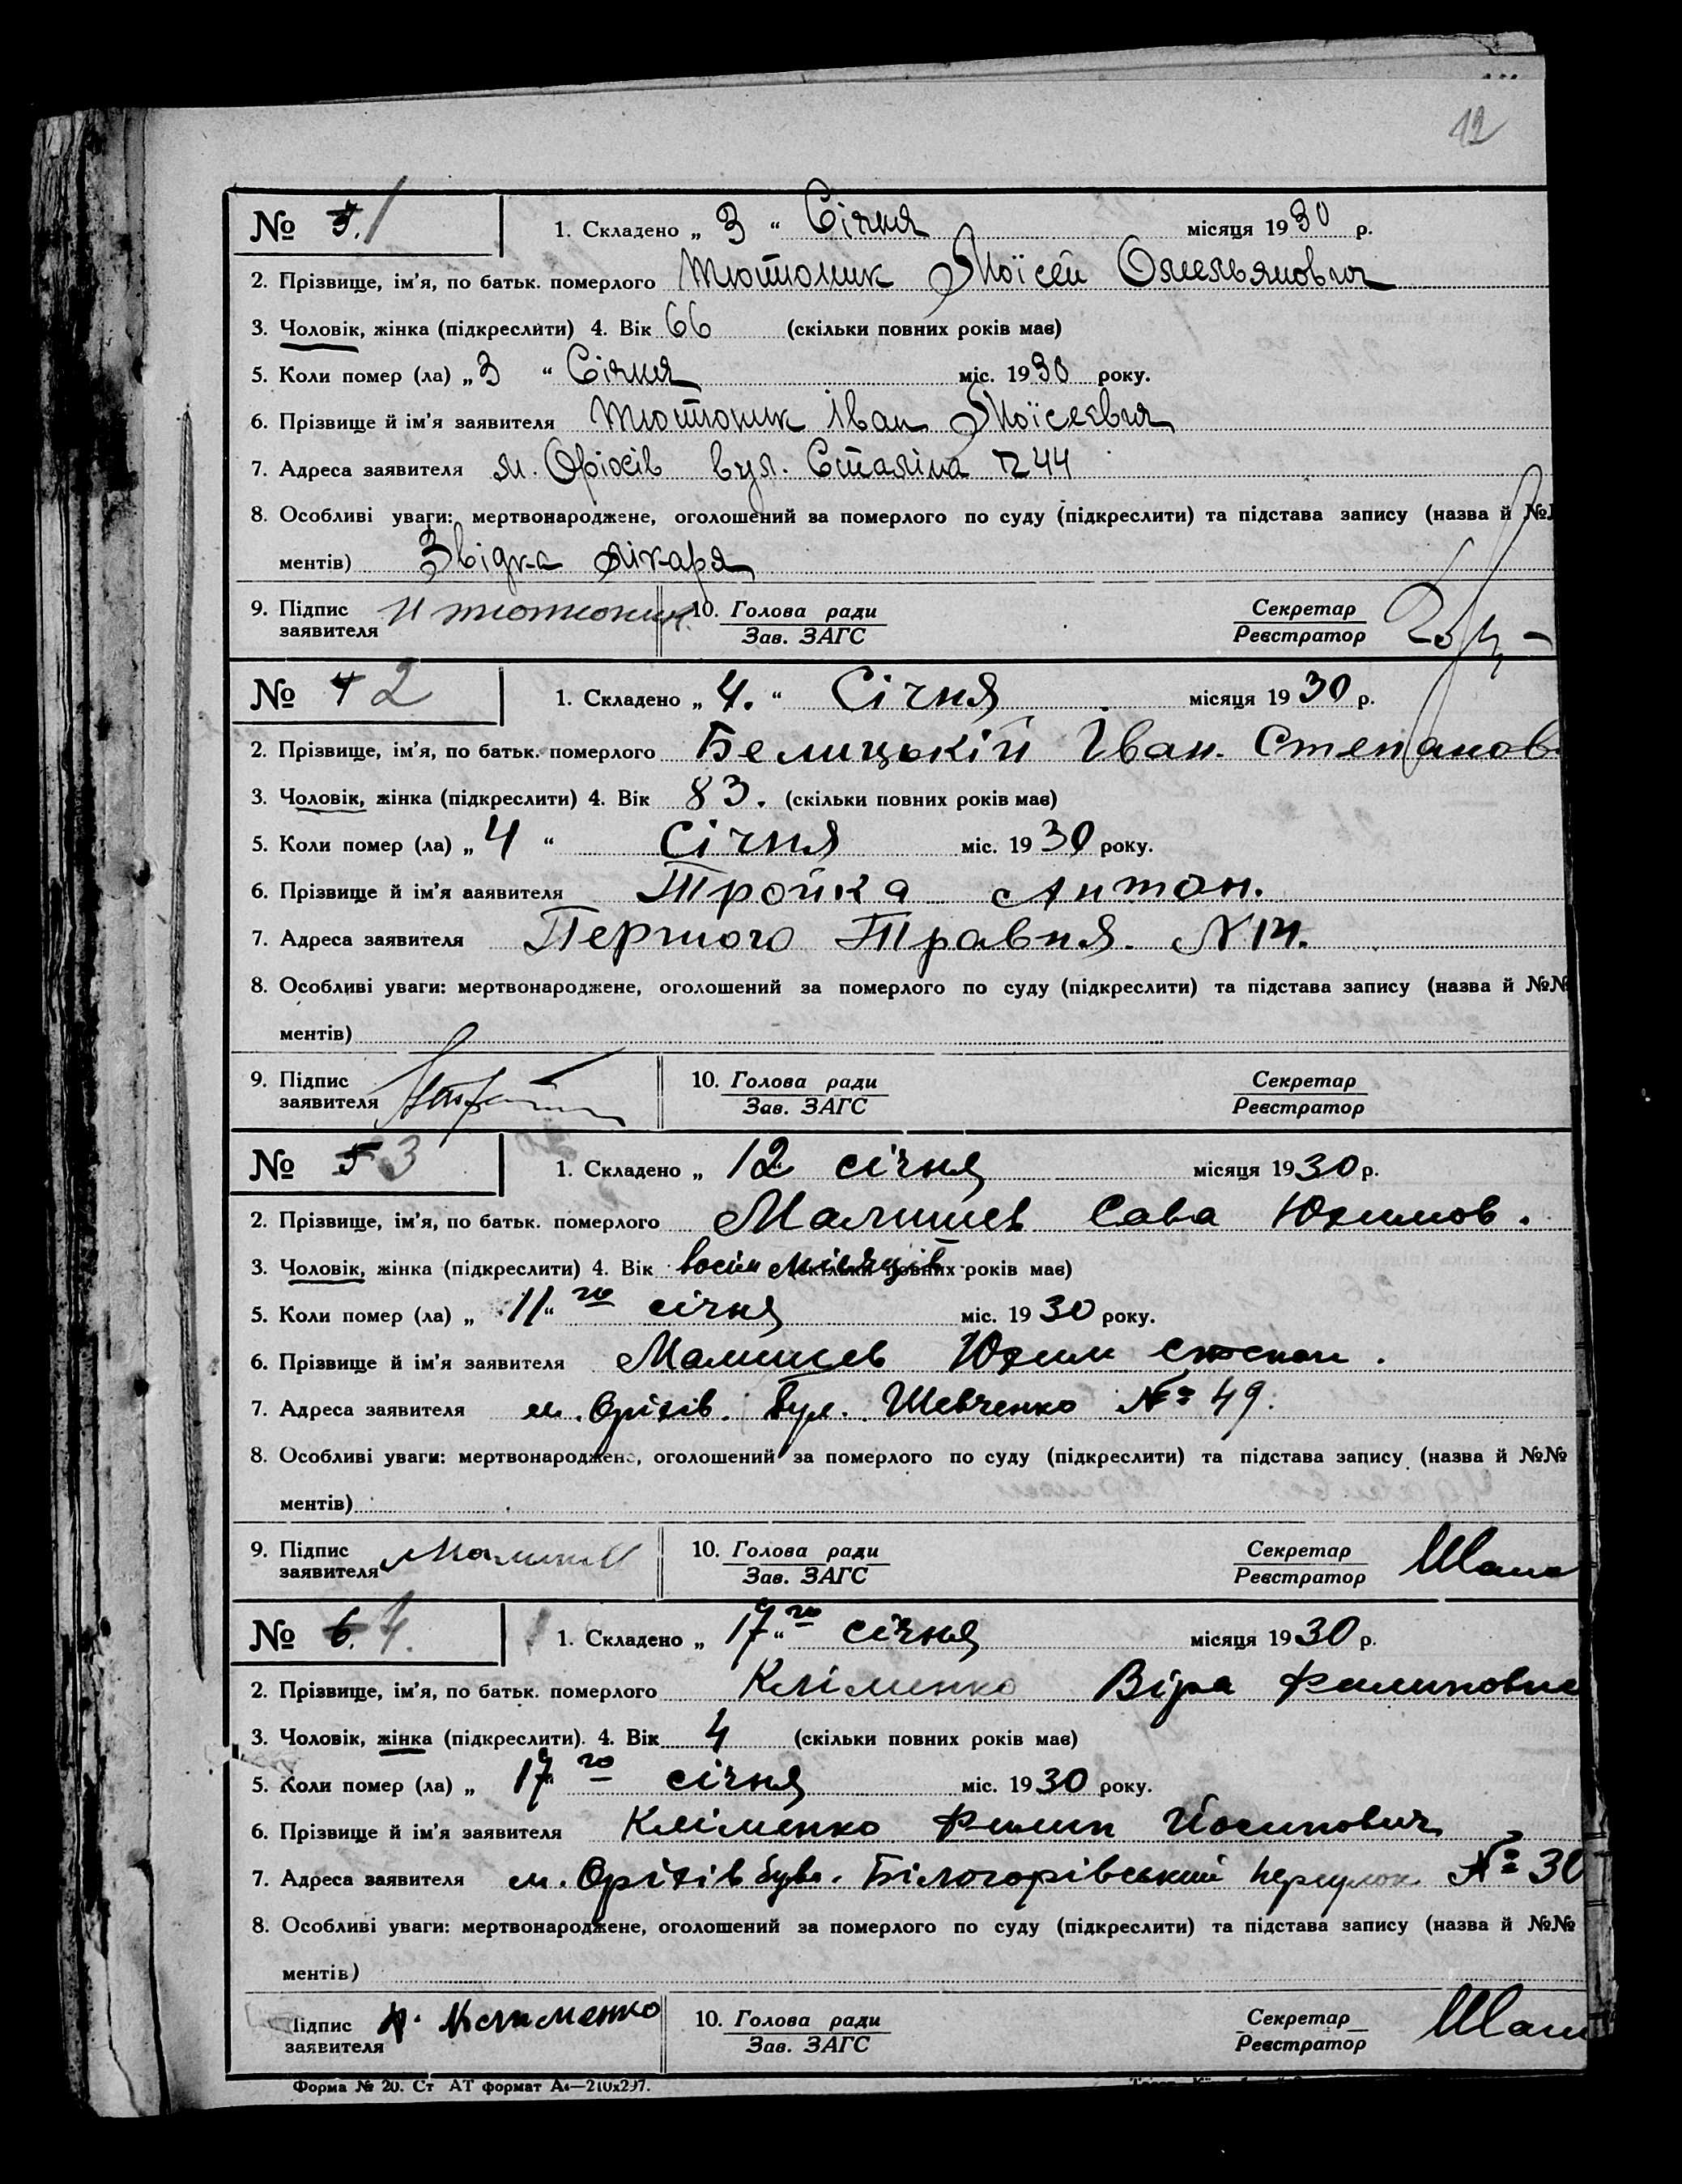 12
№ 1 1. Складено „ 3 “ Січня місяця 1930 р.
2. Прізвище, ім'я, по батьк. померлого Тютюник Мойсей Омельянович
3. Чоловік, жінка (підкреслити) 4. Вік 66 (скільки повних років має)
5. Коли помер (ла) „ 3 “ Січня міс. 1930 року.
6. Прізвище й ім'я заявителя Тютюник Іван Мойсеєвич
7. Адреса заявителя м. Оріхів вул. Сталіна 44
8. Особливі уваги: мертвонароджене, оголошений за померлого по суду (підкреслити) та підстава запису (назва й №
ментів) Звідка лікаря
9. Підпис заявителя И Тютюник 10. Голова ради Зав. ЗАГС Секретар Реєстратор
№ 4 2 1. Складено „ 4. “ Січня місяця 1930 р.
2. Прізвище, ім'я, по батьк. померлого Белицький Іван Степанов
3. Чоловік, жінка (підкреслити) 4. Вік 83. (скільки повних років має)
5. Коли помер (ла) „ 4 “ Січня міс. 1930 року.
6. Прізвище й ім'я заявителя Тройка Антон.
7. Адреса заявителя Першого Травня. N 14.
8. Особливі уваги: мертвонароджене, оголошений за померлого по суду (підкреслити) та підстава запису (назва й №№
ментів)
9. Підпис заявителя 10. Голова ради Зав. ЗАГС Секретар Реєстратор
№ 5 3 1. Складено „ 12 січня місяця 1930 р.
2. Прізвище, ім'я, по батьк. померлого Малишев Сава Юхимов.
3. Чоловік, жінка (підкреслити) 4. Вік восім місяців (скільки повних років має)
5. Коли помер (ла) „ 11 “ го січня міс. 1930 року.
6. Прізвище й ім'я заявителя Малишев Юхим Степан.
7. Адреса заявителя м. Оріхів. Вул. Шевченко № 49.
8. Особливі уваги: мертвонароджене, оголошений за померлого по суду (підкреслити) та підстава запису (назва й №№
ментів)
9. Підпис заявителя Малишев 10. Голова ради Зав. ЗАГС Секретар Реєстратор
№ 6. 4. 1. Складено „ 17 “ го січня місяця 1930 р.
2. Прізвище, ім'я, по батьк. померлого Кліменко Віра Филиповна
3. Чоловік, жінка (підкреслити). 4. Вік 4 (скільки повних років має)
5. Коли помер (ла) „ 17 го січня міс. 1930 року.
6. Прізвище й ім'я заявителя Кліменко Филип Йосипович
7. Адреса заявителя м. Оріхів Білогорівський переулок № 30
8. Особливі уваги: мертвонароджене, оголошений за померлого по суду (підкреслити) та підстава запису (назва й №№
ментів)
Підпис заявителя Ф. Клименко 10. Голова ради Зав. ЗАГС Секретар Реєстратор
Форма № 20. Ст АТ формат А4—210х297.